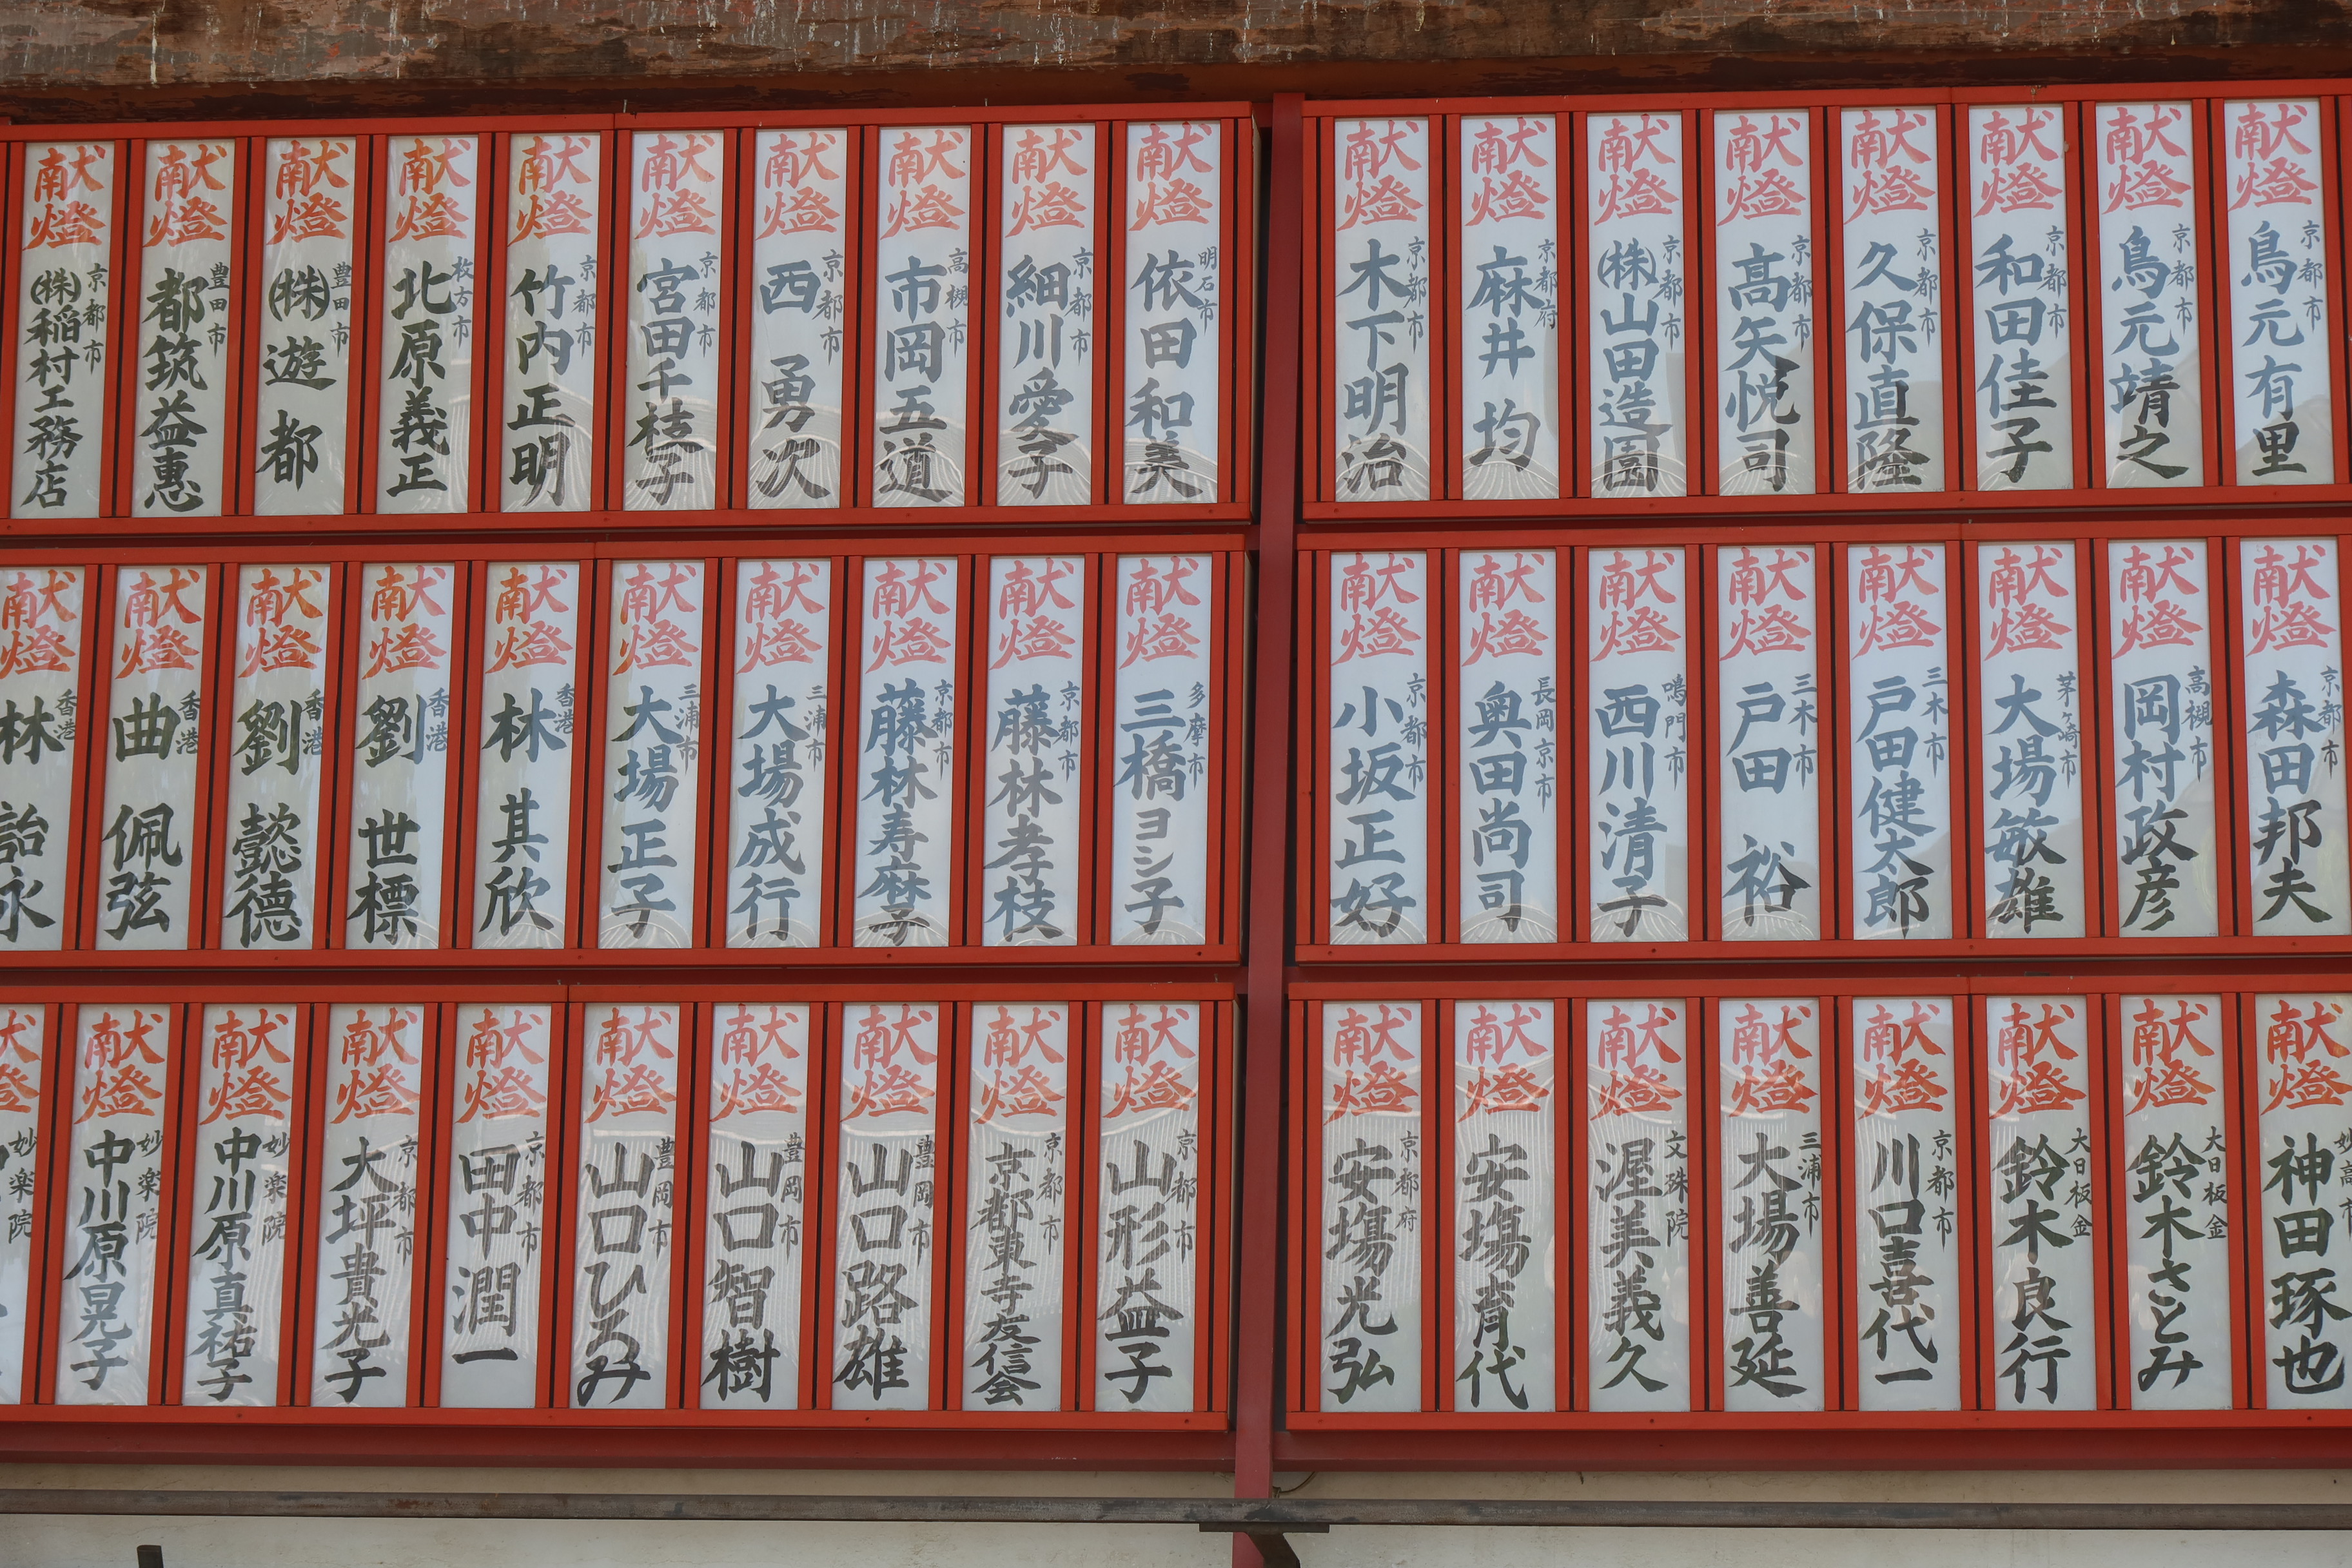 献燈
京都市
鳥元有里
献燈
京都市
鳥元靖之
献燈
京都市
和田佳子
献燈
京都市
久保直隆
献燈
京都市
高矢悦司
献燈
京都市
㈱山田造園
献燈
京都府
麻井 均
献燈
京都市
木下明治
献燈
明石市
依田和美
献燈
京都市
細川愛子
献燈
高槻市
市岡五道
献燈
京都市
西 勇次
献燈
京都市
宮田千枝子
献燈
京都市
竹内正明
献燈
枚方市
北原義正
献燈
豊田市
㈱遊都
献燈
豊田市
都筑益惠
献燈
京都市
㈱稲村工務店
献燈
京都市
森田邦夫
献燈
高槻市
岡村政彦
献燈
茅ヶ崎市
大場敏雄
献燈
三木市
戸田健太郎
献燈
三木市
戸田 裕
献燈
鳴門市
西川清子
献燈
長岡京市
奥田尚司
献燈
京都市
小坂正好
献燈
多摩市
三橋ヨシ子
献燈
京都市
藤林孝枝
献燈
京都市
藤林寿麿子
献燈
三浦市
大場成行
献燈
三浦市
大場正子
献燈
香港
林 其欣
献燈
香港
劉 世標
献燈
香港
劉 懿德
献燈
香港
曲 佩弦
献燈
香港
林 詒永
献燈
妙高市
神田琢也
献燈
大日板金
鈴木さとみ
献燈
大日板金
鈴木良行
献燈
京都市
川口喜代一
献燈
三浦市
大場善延
献燈
文殊院
渥美義久
献燈
安塲育代
献燈
京都府
安塲光弘
献燈
京都市
山形益子
献燈
京都市
京都東寺友信会
献燈
豊岡市
山口路雄
献燈
豊岡市
山口智樹
献燈
豊岡市
山口ひろみ
献燈
京都市
田中潤一
献燈
京都市
大坪貴光子
献燈
妙楽院
中川原真祐子
献燈
妙楽院
中川原晃子
妙楽院